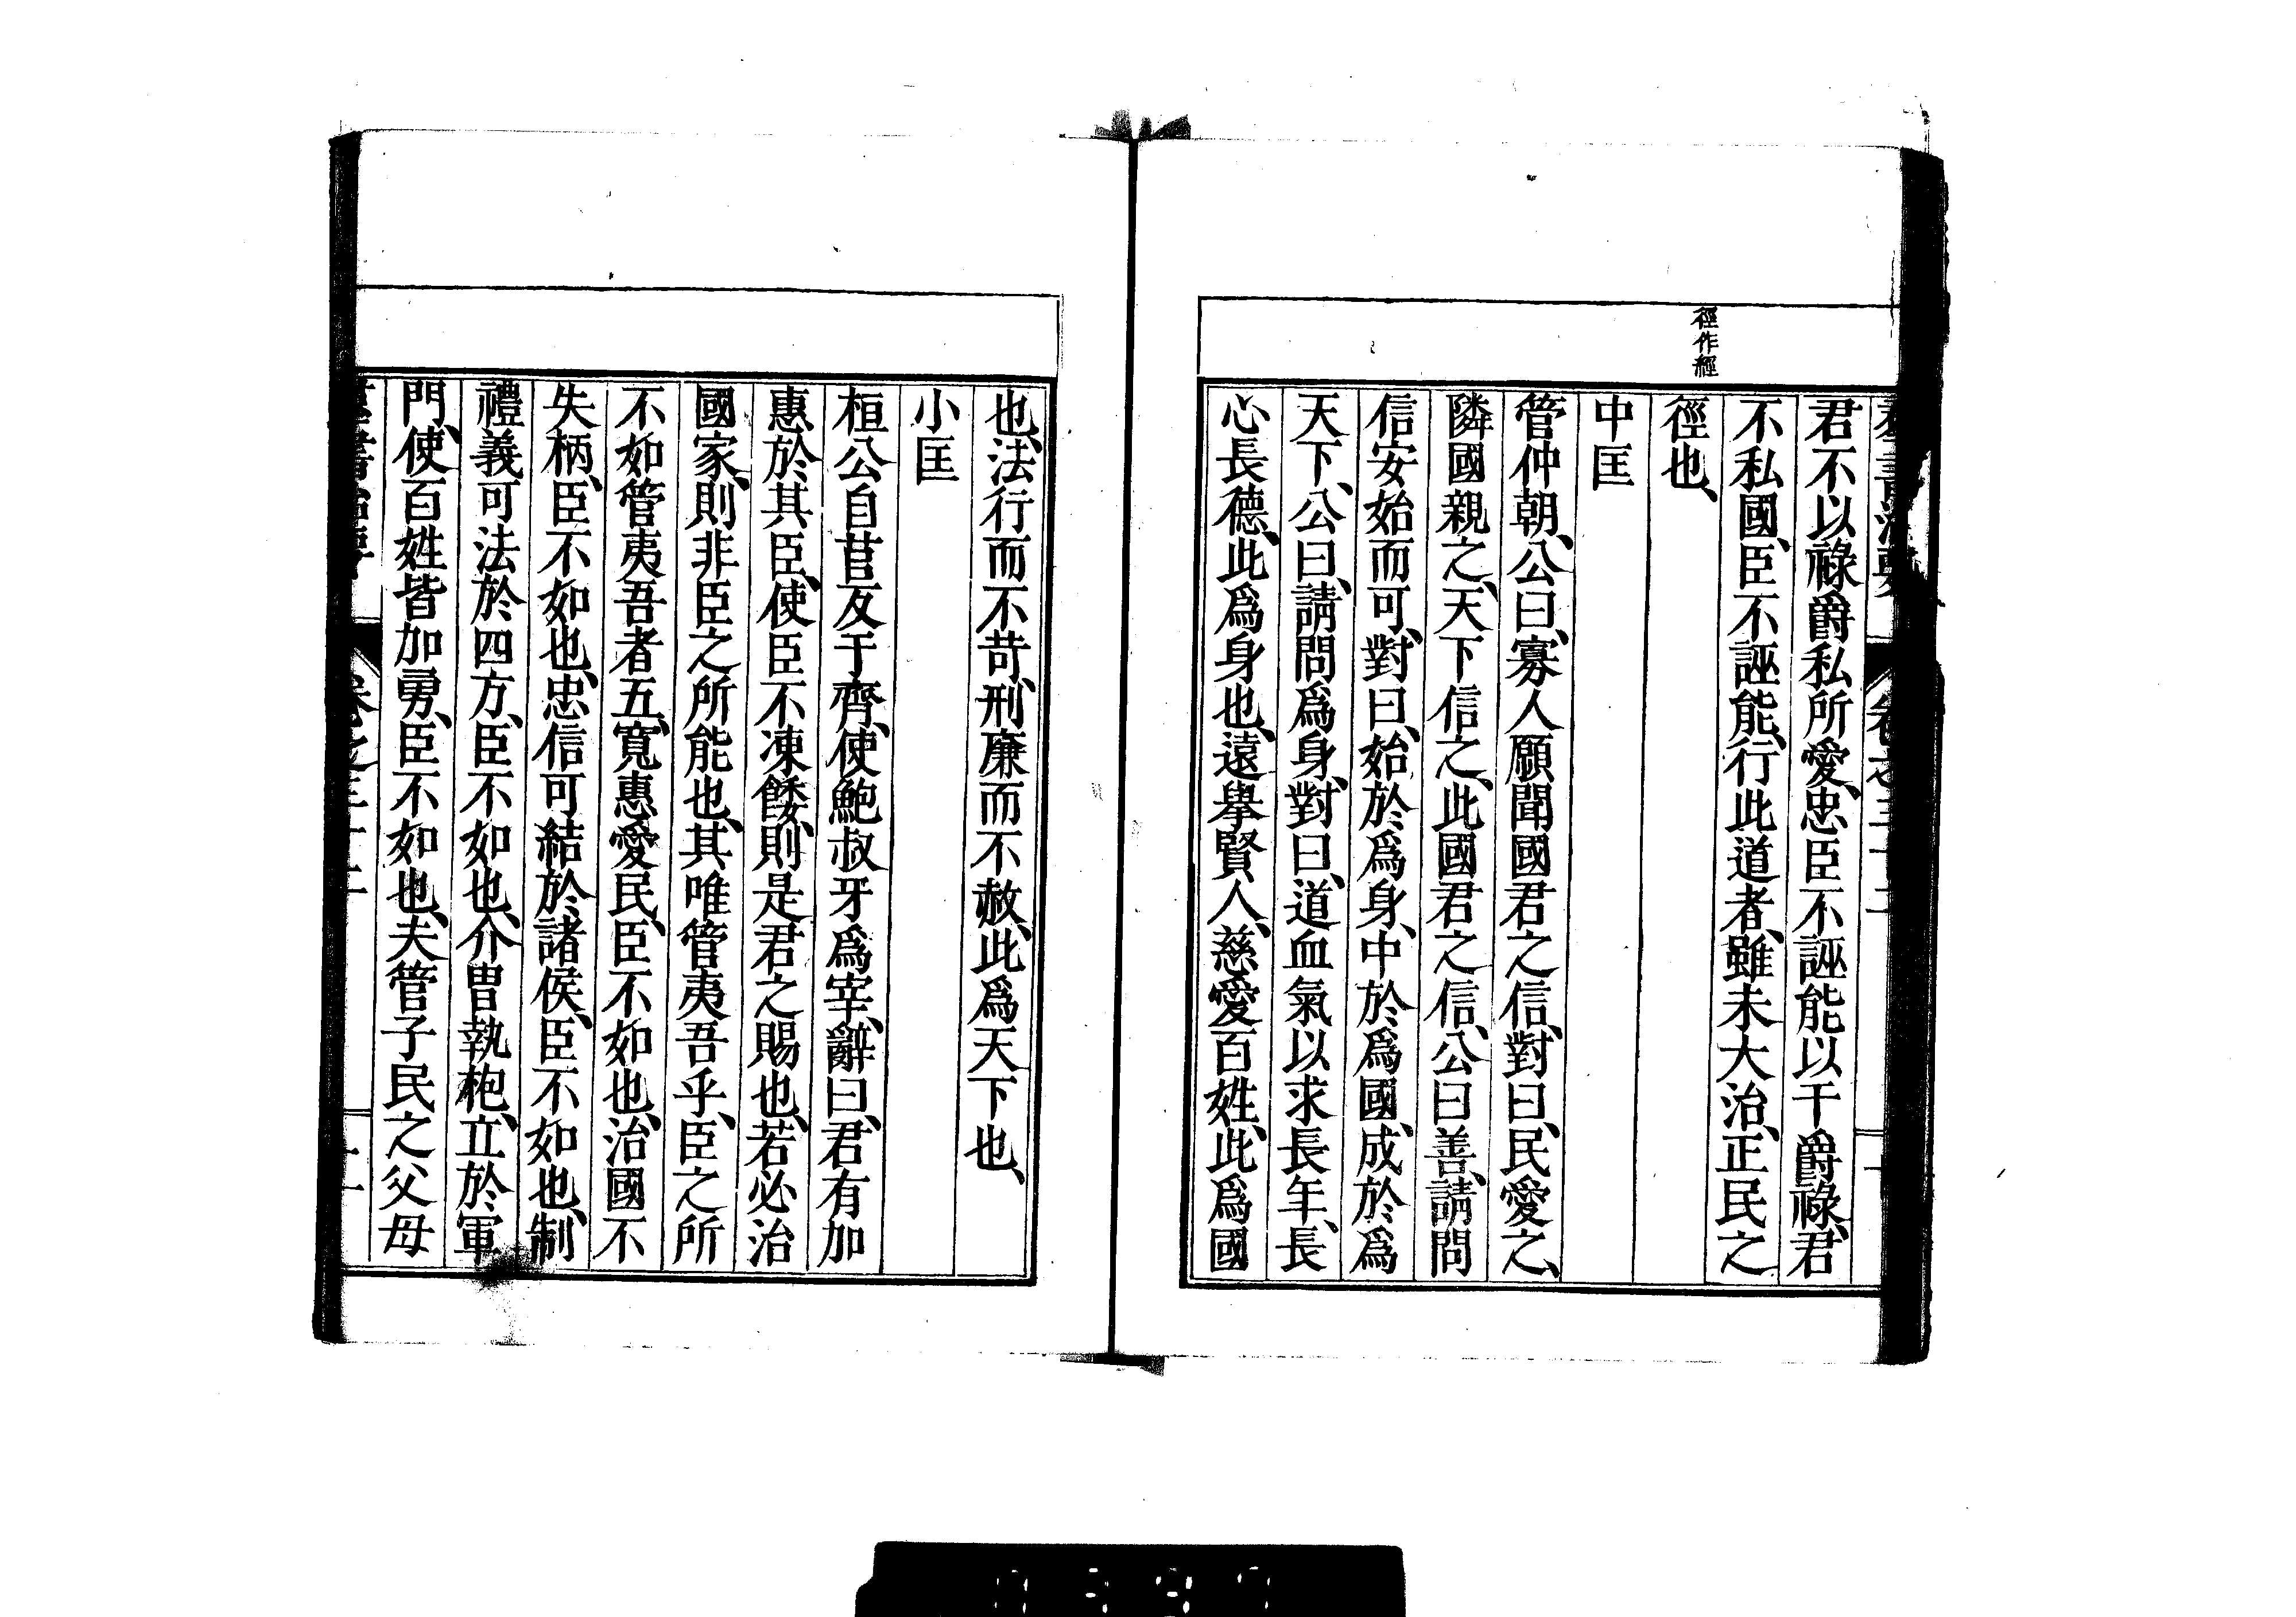 徑作經
君不以祿爵私所愛、忠臣不誣能以干爵祿、君
不私國、臣不誣能、行此道者、雖未大治、正民之
徑也、
中匡
管仲朝、公曰、寡人願聞國君之信、對曰、民愛之、
隣國親之、天下信之、此國君之信、公曰善、請問
信安始而可、對曰、始於爲身、中於爲國、成於爲
天下、公曰、請問爲身、對曰、道血氣以求長年、長
心長德、此爲身也、遠擧賢人、慈愛百姓、此爲國
也、法行而不苛、刑廉而不赦、此爲天下也、
小匡
桓公自莒反于齊、使鮑叔牙爲宰、辭曰、君有加
惠於其臣、使臣不凍餒、則是君之賜也、若必治
國家、則非臣之所能也、其唯管夷吾乎、臣之所
不如管夷吾者五、寬惠愛民、臣不如也、治國不
失柄、臣不如也、忠信可結於諸侯、臣不如也、制
禮義可法於四方、臣不如也、介胄執枹、立於軍
門、使百姓皆加勇、臣不如也、夫管子民之父母